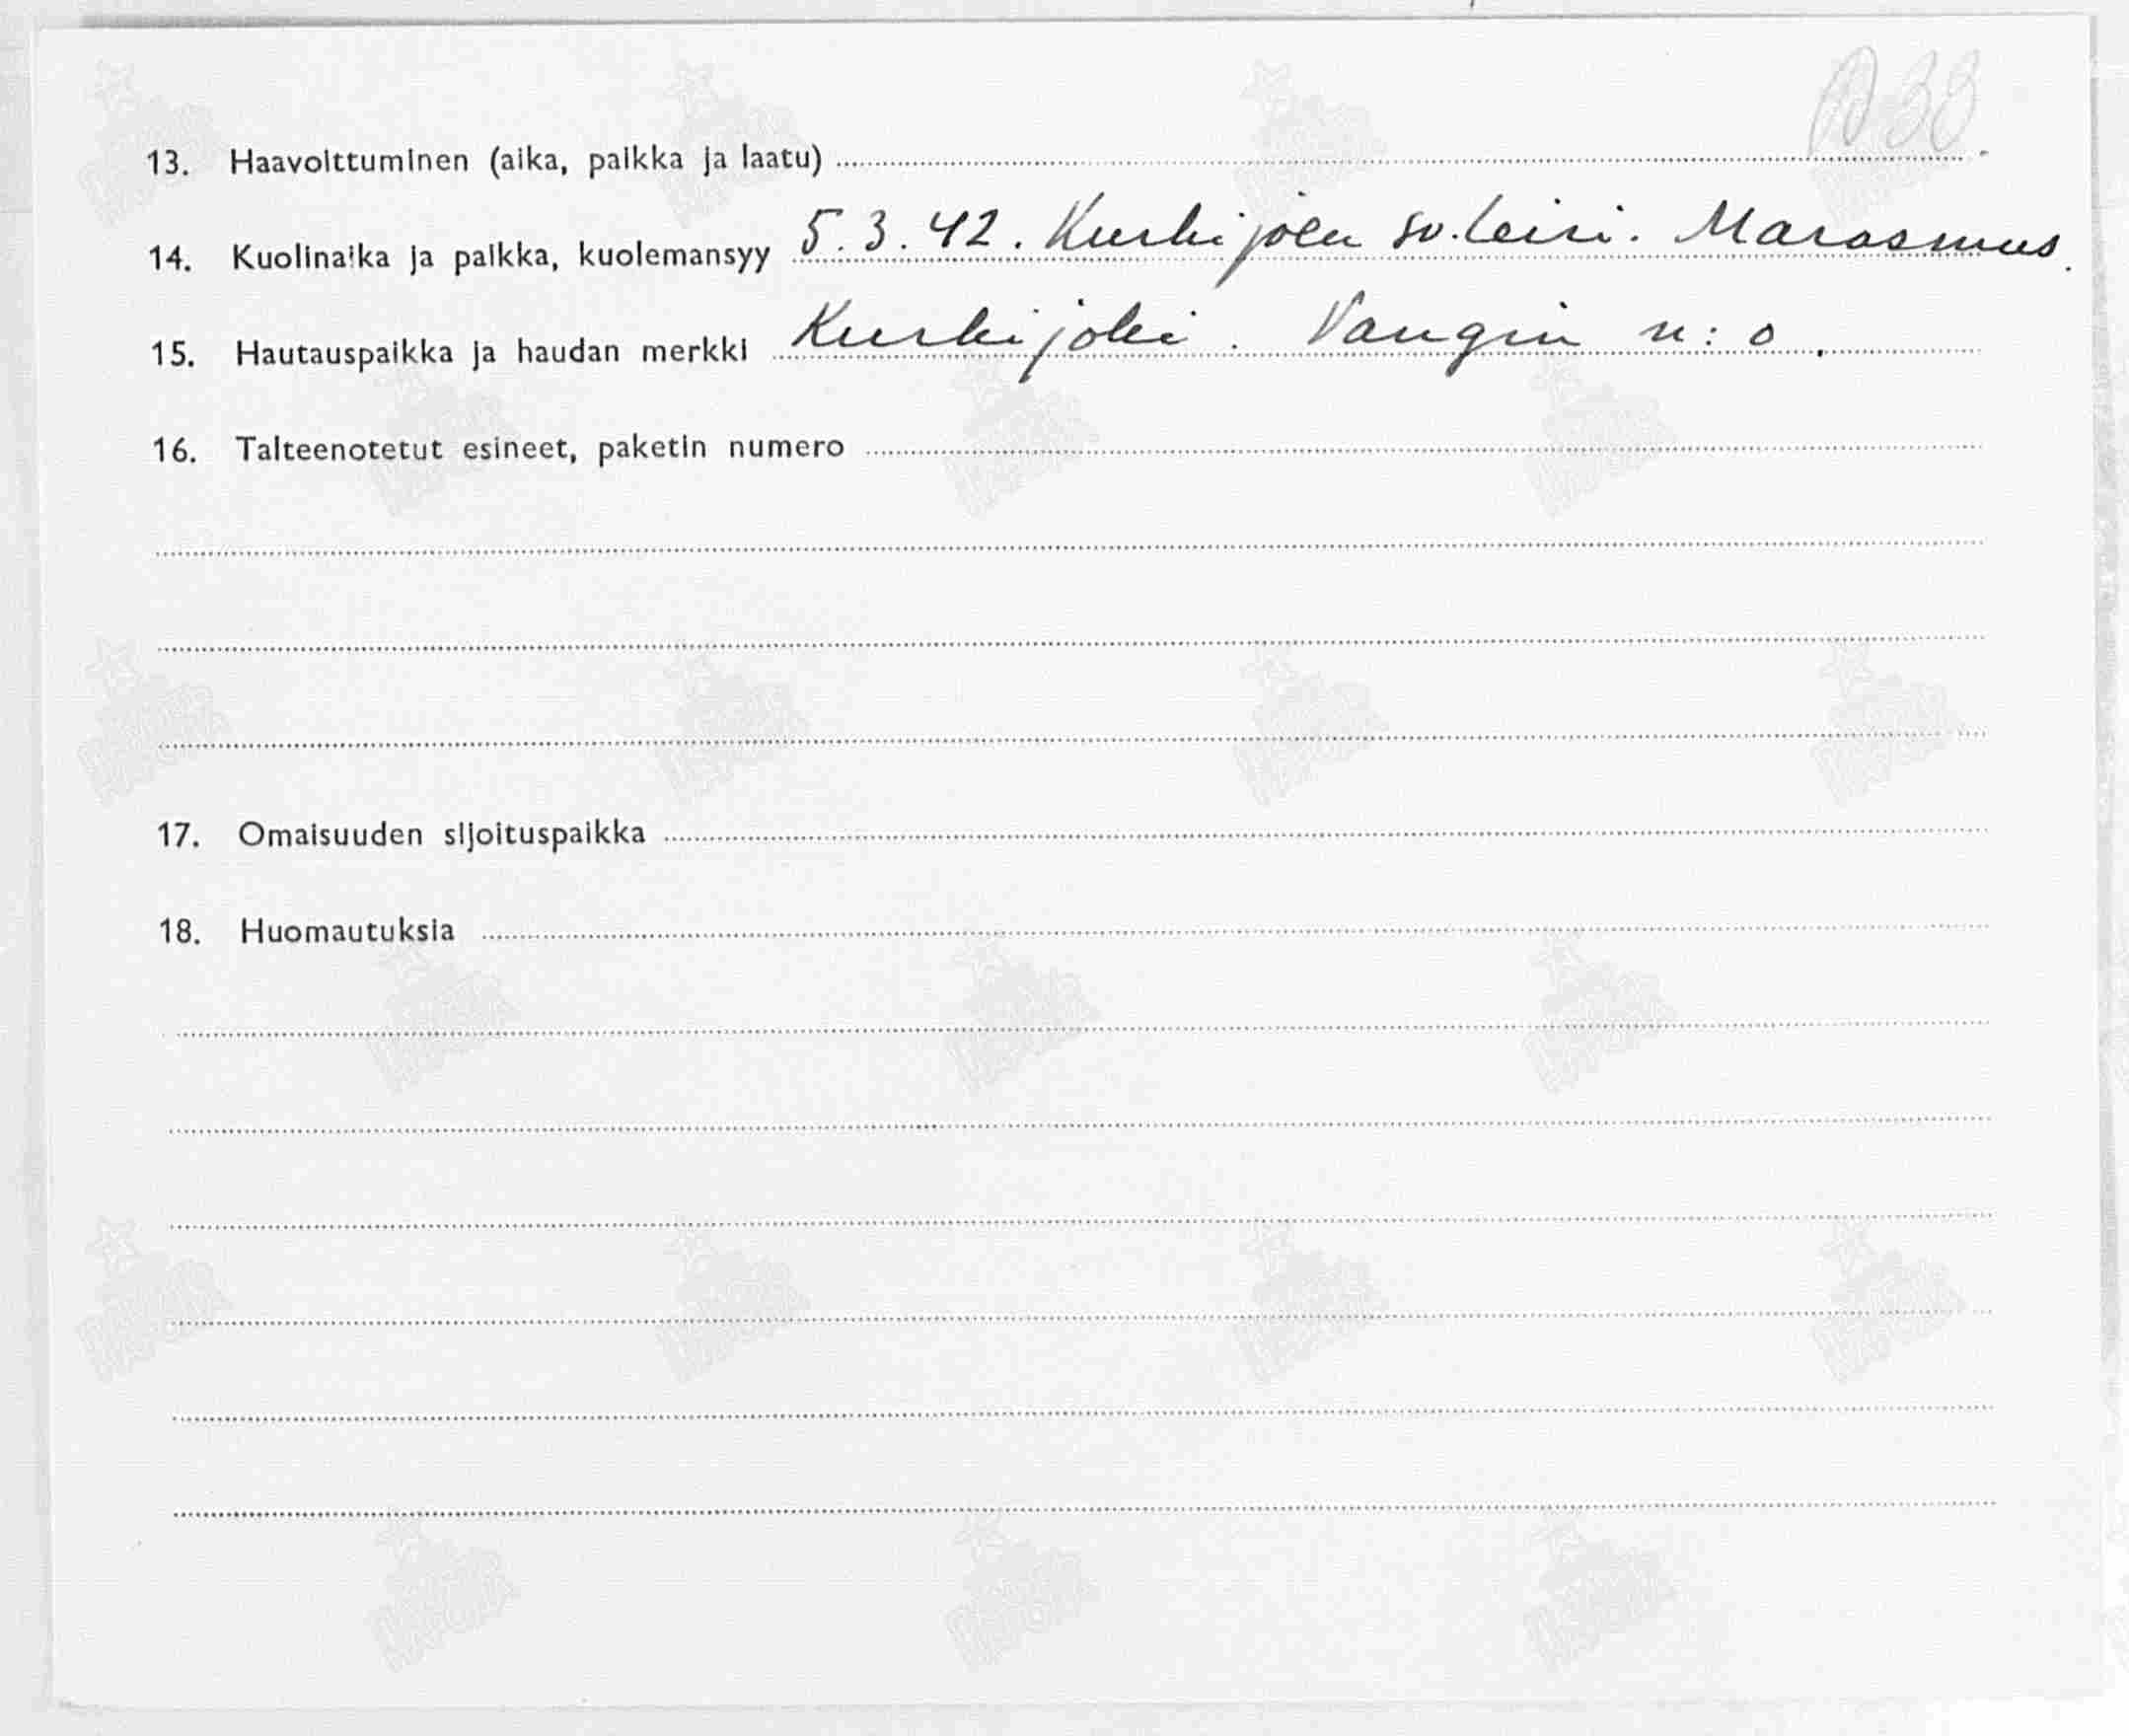 13. Haavoittuminen (aika, paikka ja laatu)
14. Kuolinaika ja paikka, kuolemansyy 5.3.42. Kurkijoen sv.leiri. Marasmus.
15. Hautauspaikka ja haudan merkki Kurkijoki. Vangin n:o.
16. Talteenotetut esineet, paketin numero
17. Omaisuuden sijoituspaikka
18. Huomautuksia